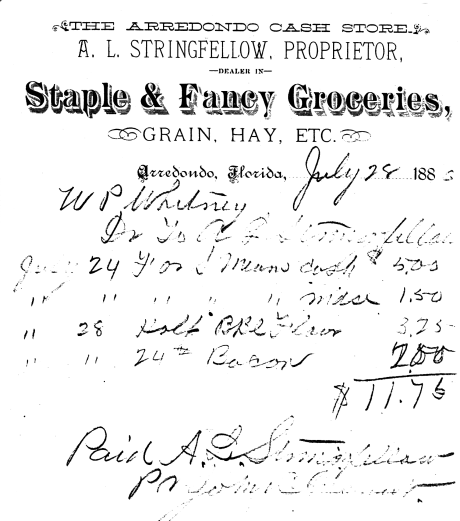 THE ARREDONDO CASH STORE.
A. L. STRINGFELLOW, PROPRIETOR,
—DEALER IN—
Staple & Fancy Groceries,
GRAIN, HAY, ETC.
Arredondo, Florida, July 28 188
W P Whitney
Dr To A L Stringfellow
July 24 For I Means cash $ 5.00
" " " " " mdse 1.50
" 28 Bbl Flour 3.25
" " 24 lb Bacon 2.00
$ 11.75
Paid A. L. Stringfellow
Pr